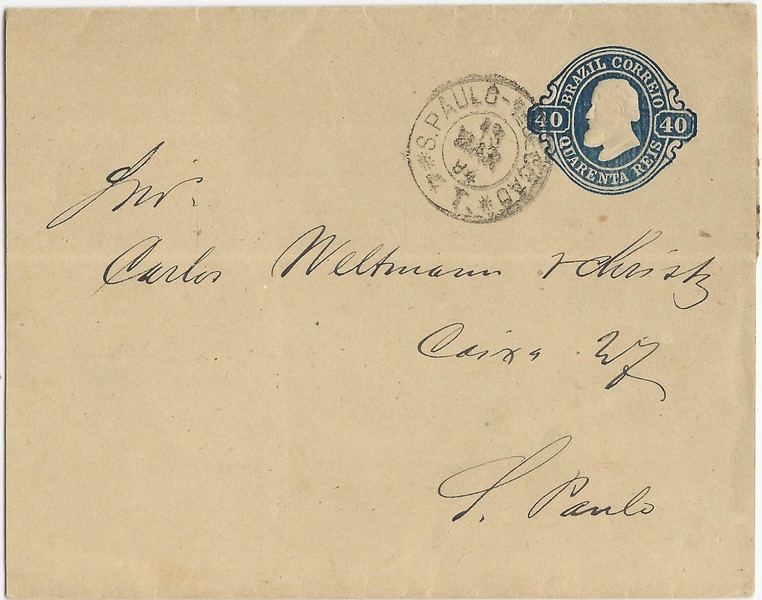 BRAZIL CORREIO
40 40
QUARENTA REIS
S. PAULO
13
Snr.
Carlos Weltmann
Caixa
S. Paulo